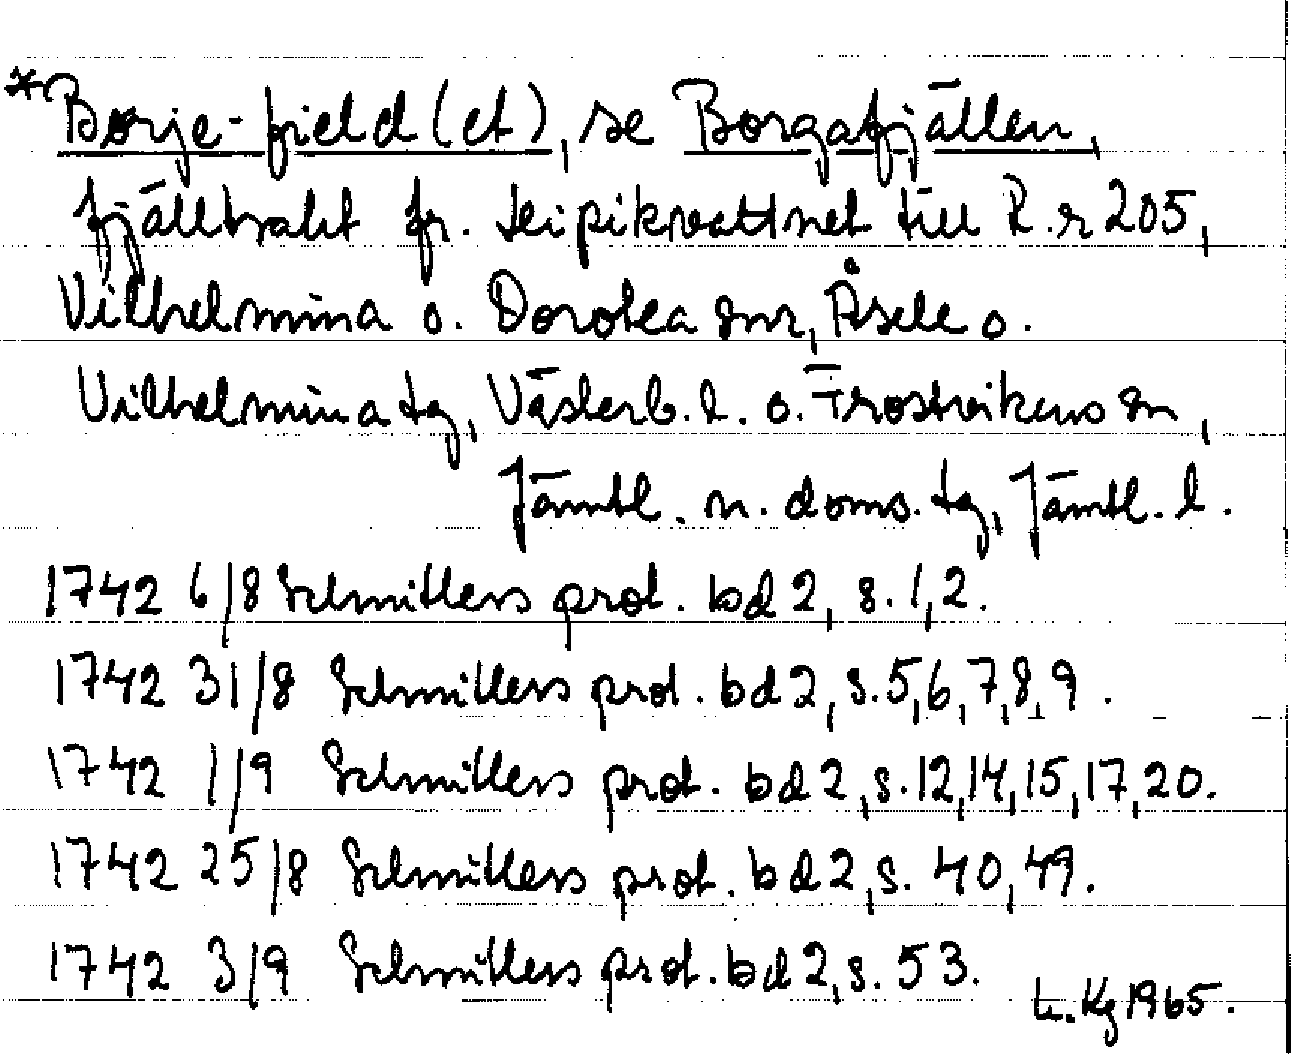 *Børje-field(et), se Borgafjällen,
fjälltrakt fr. Leipikvattnet till R.r 205,
Vilhelmina o. Dorotea snr, Åsele o.
Vilhelmina tg, Västerb. l. o. Frostvikens sn,
Jämtl. n. doms. tg, Jämtl. l.
1742 6/8 Schnitlers prot. bd 2, s. 1,2.
1742 31/8 Schnitlers prot. bd 2, s. 5,6,7,8,9.
1742 1/9 Schnitlers prot. bd 2, s. 12,14,15,17,20.
1742 25/8 Schnitlers prot. bd 2, s. 40,49.
1742 3/9 Schnitlers prot. bd 2, s. 53.
Kg 1965.